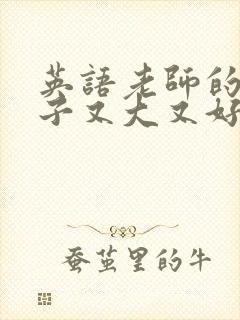 英語老師的
子又大又好
蚕茧里的牛